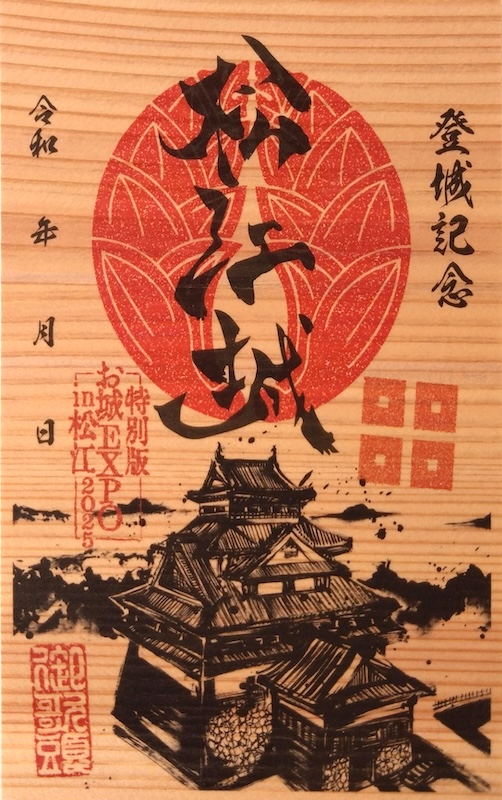 登城記念
松江城
令和 年 月 日
特別版
お城EXPO
in松江2025